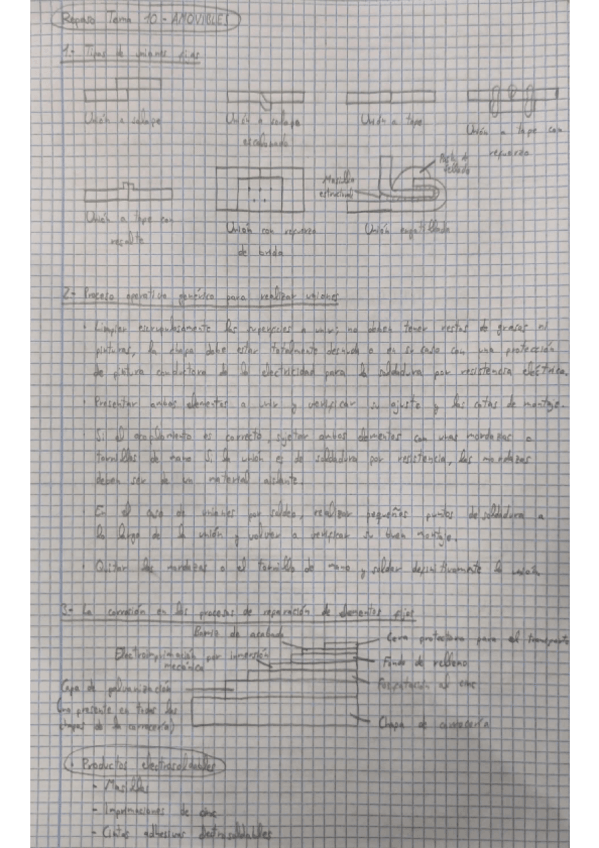 Repaso Tema 10 - AMOVIBLES
1.- Tipos de uniones fijas
Unión a solape
Unión a solape
escalonado
Unión a tope
Unión a tope con
refuerzo
Masilla
estructural
Pasta de
sellado
Unión a tope con
resalte
Unión con refuerzo
de brida
Unión engatillada
2.- Proceso operativo genérico para realizar uniones
· Limpiar escrupulosamente las superficies a unir; no deben tener restos de grasas ni
pinturas, la chapa debe estar totalmente desnuda o en su caso con una protección
de pintura conductora de la electricidad para la soldadura por resistencia eléctrica.
· Presentar ambos elementos a unir y verificar su ajuste y las cotas de montaje.
· Si el acoplamiento es correcto, sujetar ambos elementos con unas mordazas o
tornillos de mano. Si la unión es de soldadura por resistencia, las mordazas
deben ser de un material aislante.
· En el caso de uniones por soldeo, realizar pequeños puntos de soldadura a
lo largo de la unión y volver a verificar su buen montaje.
· Quitar las mordazas o el tornillo de mano y soldar definitivamente la unión.
3.- La corrosión en los procesos de reparación de elementos fijos
Barniz de acabado
Cera protectora para el transporte
Electroimprimación por inmersión
mecánica
Fondo de relleno
Capa de galvanización
(no presente en todas las
chapas de la carrocería)
Fosfatación al zinc
Chapa de carrocería
· Productos electrosoldables
- Masillas
- Imprimaciones de zinc
- Cintas adhesivas electrosoldables